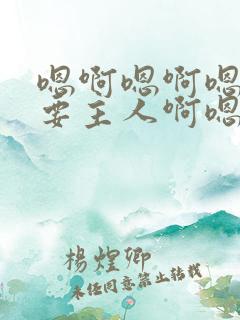 嗯啊嗯啊嗯
要主人啊嗯
楊煌卿
未经同意禁止转载